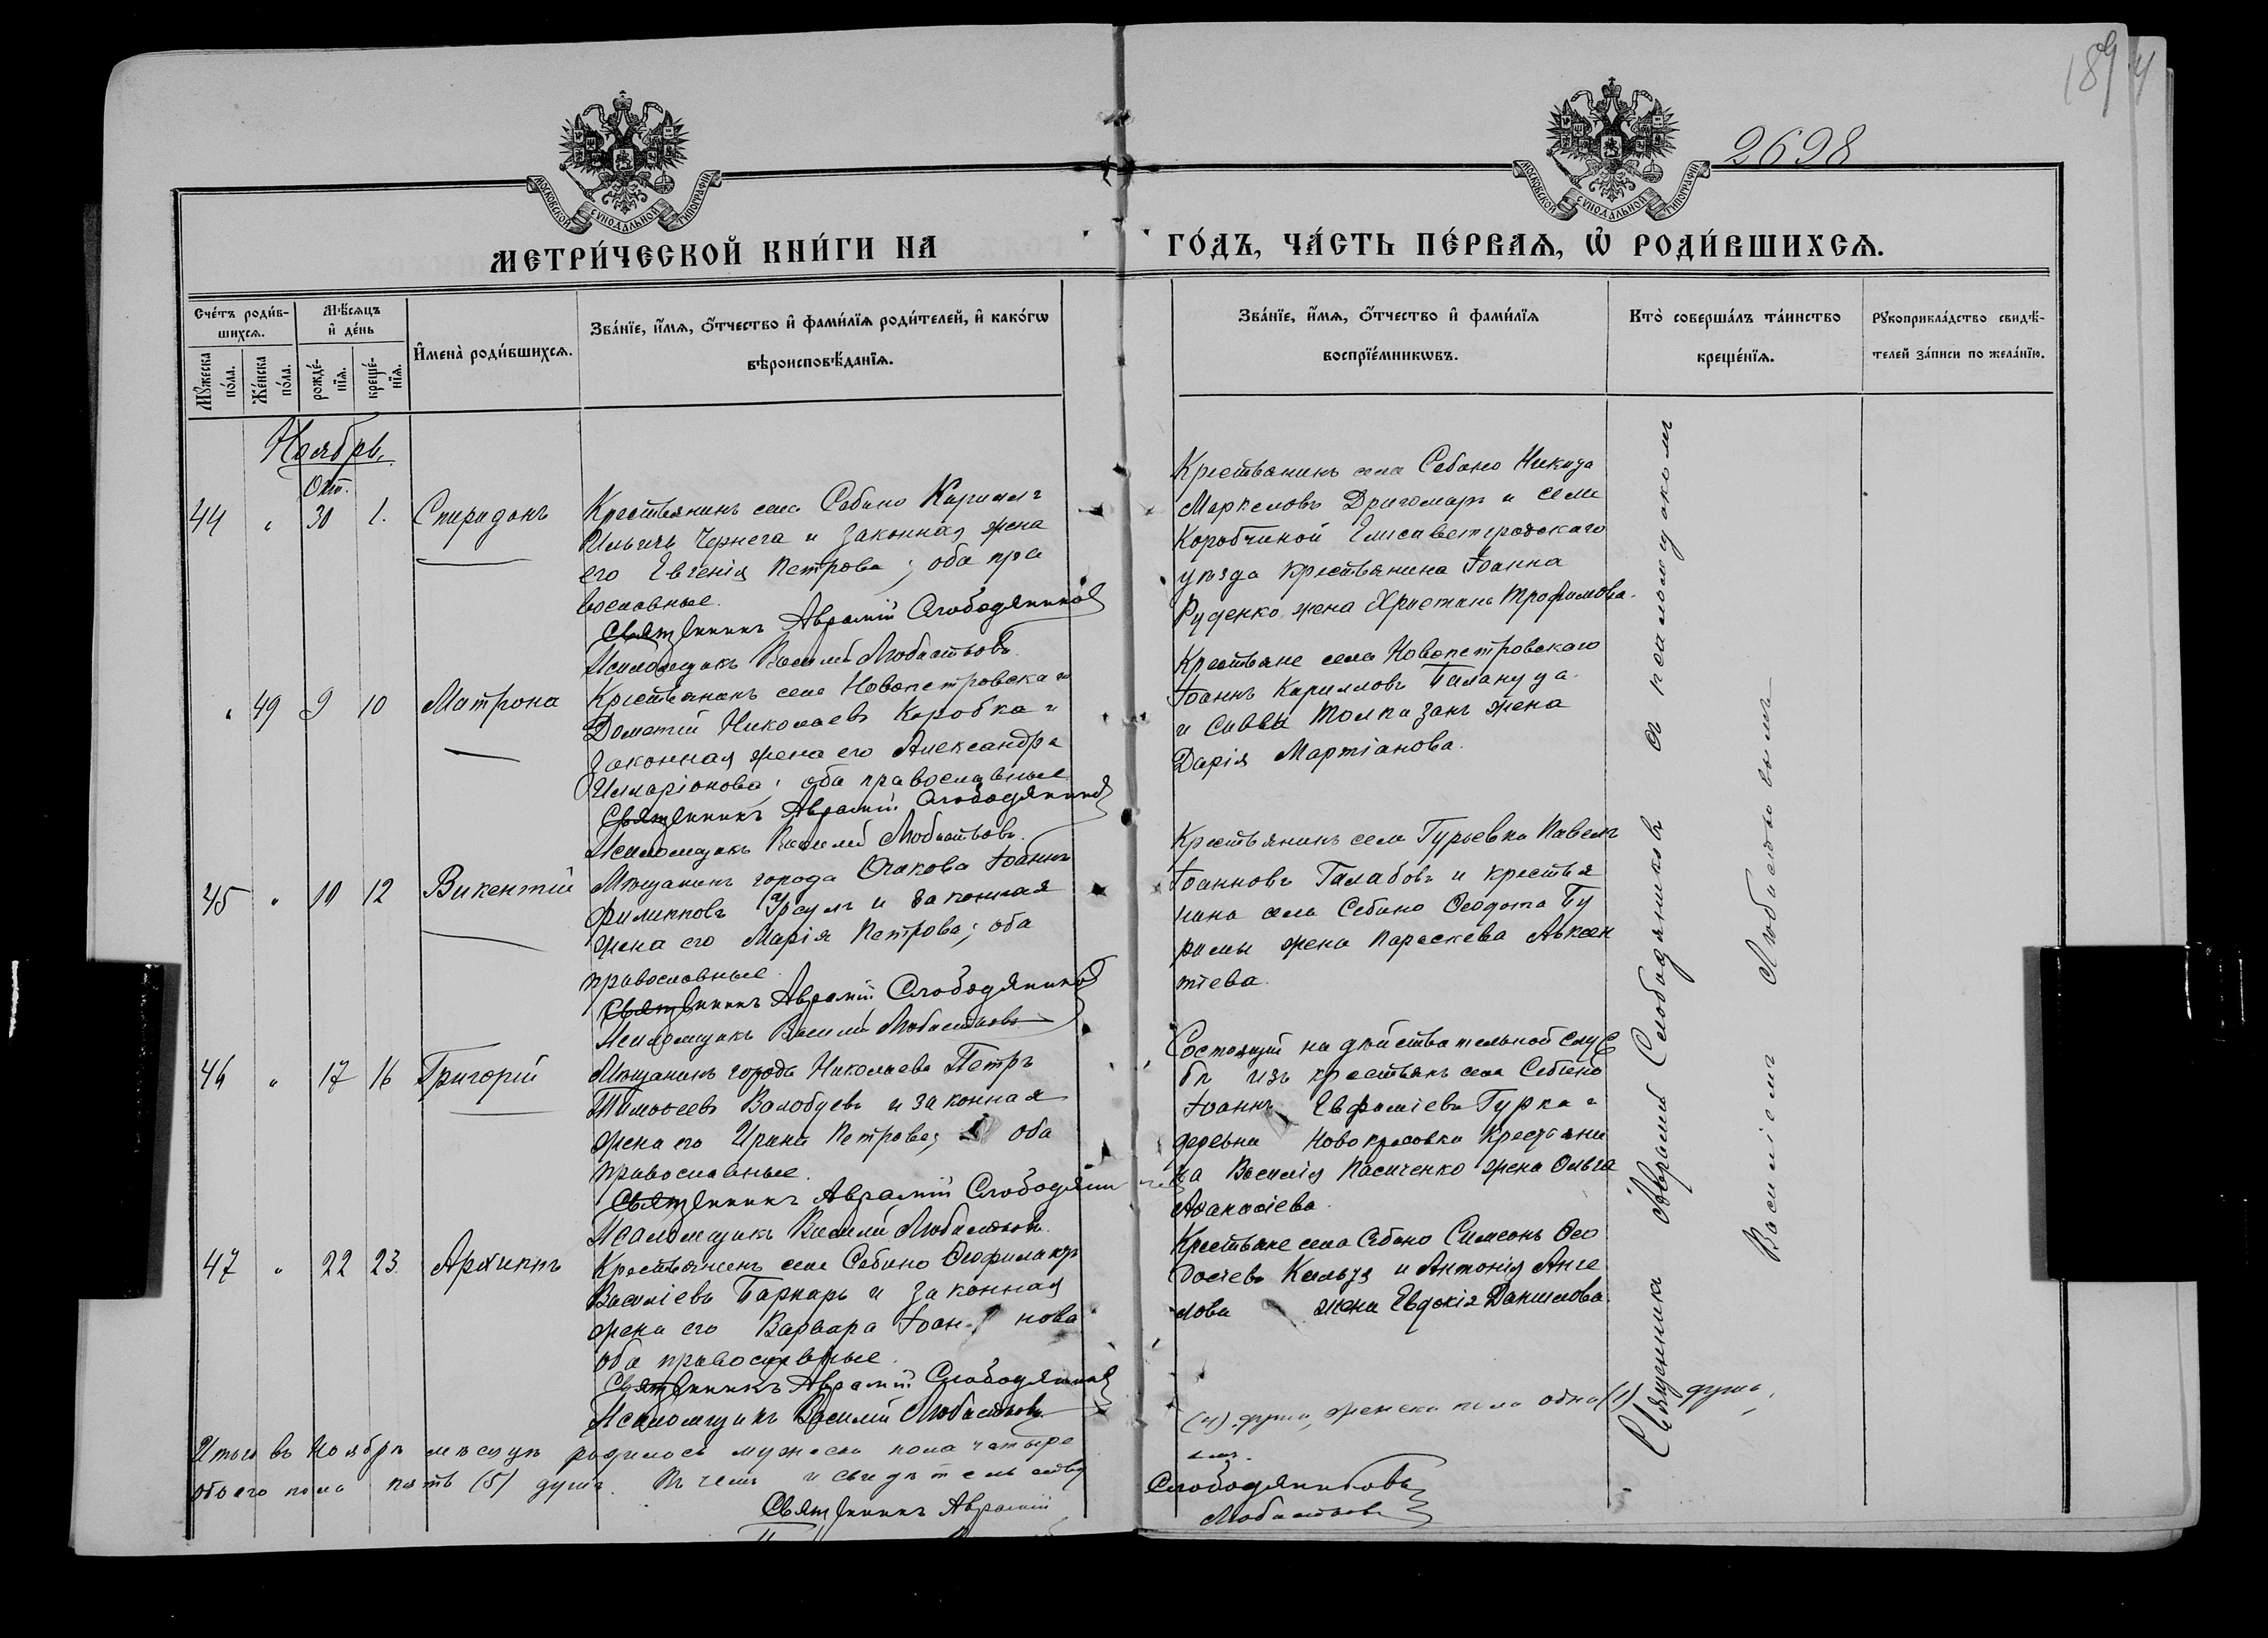 1894
2698
МОСКОВСКОЙ СѴНОДАЛЬНОЙ ТИПОГРАФІИ
МОСКОВСКОЙ СѴНОДАЛЬНОЙ ТИПОГРАФІИ
МЕТРИ́ЧЕСКОЙ КНИ́ГИ НА ГО́ДЪ, ЧА́СТЬ ПЕ́РВАѦ, Ѡ҆ РОДИ́ВШИХСѦ.
Сче́тъ роди́в-
шихсѧ.
Мꙋ́жеска по́ла.
Же́нска по́ла.
Мѣ́сѧцъ
и҆ де́нь
рожде́-
нїѧ.
креще́-
нїѧ.
И҆мена̀ роди́вшихсѧ.
Зва́нїе, и҆́мѧ, ѻ҆́тчество и҆ фами́лїѧ роди́телей, и҆ како́гѡ
вѣроисповѣ́данїѧ.
Зва́нїе, и҆́мѧ, ѻ҆́тчество и҆ фами́лїѧ
воспрїе́мникѡвъ.
Кто̀ соверша́лъ та́инство
креще́нїѧ.
Рꙋкоприкла́дство свидѣ́-
телей за́писи по жела́нїю.
Ноябрь.
Окт.
44 " 30 1. Спиридонъ
Крестьянинъ села Себино Кириллъ
Ильичъ Чернега и законная жена
его Евгенія Петрова; оба пра
вославные.
Священникъ Аврамій Слободяниковъ
Псаломщикъ Василій Любистковъ
Крестьянинъ села Себино Никита
Маркеловъ Дригомарь и села
Коробчиной Елисаветградскаго
уѣзда крестьянина Іоанна
Руденко жена Христина Трофимова.
" 49 9 10 Матрона
Крестьянинъ села Новопетровска го
Дометій Николаевъ Коробка и
законная жена его Александра
Илларіонова; оба православные.
Священникъ Аврамій Слободяниковъ
Псаломщикъ Василій Любистковъ.
Крестьяне села Новопетровскаго
Іоаннъ Кирилловъ Балануца
и Саввы Толпизанъ жена
Дарія Мартіанова.
45 " 10 12 Викентій
Мѣщанинъ города Очакова Іоаннъ
Филипповъ Урсулъ и законная
жена его Марія Петрова; оба
православные.
Священникъ Аврамій Слободяниковъ
Псаломщикъ Василій Любистковъ
Крестьянинъ села Гурьевка Павелъ
Іоанновъ Галабовъ и крестья
нина села Себино Ѳеодота Бу
рилы жена Параскева Авксен
тіева.
46 " 17 18 Григорій
Мѣщанинъ города Николаева Петръ
Тимоѳеевъ Волобуевъ и законная
жена его Ирина Петрова; оба
православные.
Священникъ Аврамій Слободяниковъ
Псаломщикъ Василій Любистковъ.
Состоящій на дѣйствительной служ
бѣ изъ крестьянъ села Себино
Іоаннъ Евфиміевъ Гурка и
деревни Новокрасовки крестьяни
на Василія Пасиченко жена Ольга
Аѳанасіева.
47 " 22 23. Архиппъ
Крестьянинъ села Себино Ѳеофилактъ
Василіевъ Барнарь и законная
жена его Варвара Іоан нова
оба православные.
Священникъ Аврамій Слободяниковъ
Псаломщикъ Василій Любистковъ
Крестьяне села Себино Симеонъ Ѳео
досіевъ и Антонія Анге
лова жена Евдокія Данилова.
Священникъ Аврамій Слободяниковъ съ псаломщикомъ
Василіемъ Любистковымъ
Итого въ Ноябрѣ мѣсяцѣ родилось мужеска пола четыре (4) души, женска пола одна (1) душа,
обоего пола пять (5) душъ. Въ чемъ и свидѣтельству емъ.
Священникъ Аврамій Слободяниковъ
Любистковъ